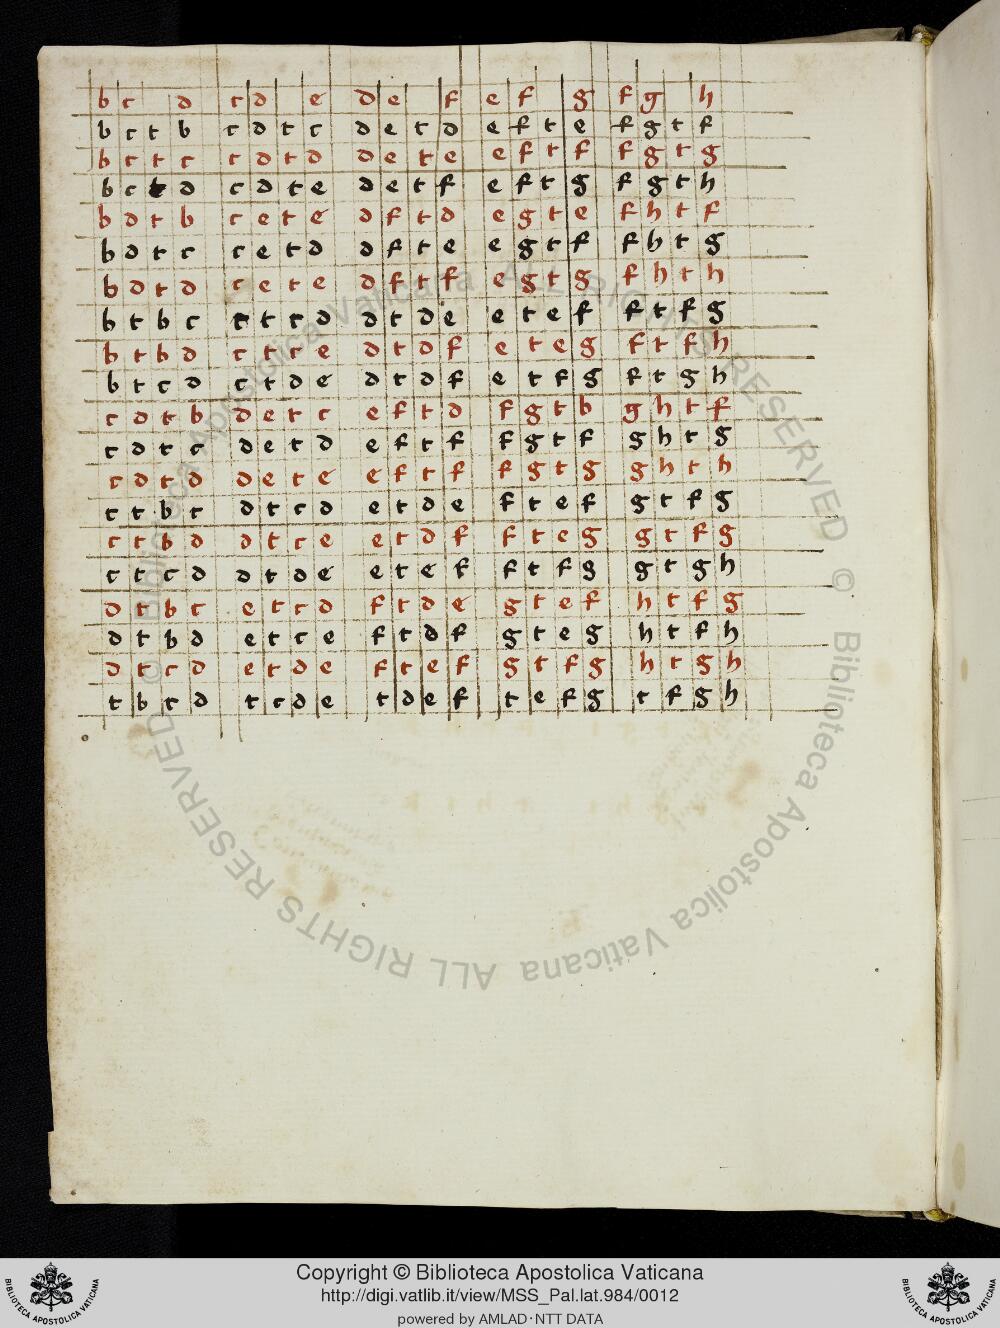 b c d c d e d e f e f g f g h
b c t b c d t c d e t d e f t e f g t f
b c t c c d t d d e t e e f t f f g t g
b c t d c d t e d e t f e f t g f g t h
b d t b c e t e d f t d e g t e f h t f
b d t c c e t d d f t e e g t f f h t g
b d t d c e t e d f t f e g t g f h t h
b t b c c t c d d t d e e t e f f t f g
b t b d c t c e d t d f e t e g f t f h
b t c d c t d e d t d f e t f g f t g h
c d t b d e t c e f t d f g t b g h t f
c d t c d e t d e f t f f g t f g h t g
c d t d d e t e e f t f f g t g g h t h
c t b c d t c d e t d e f t e f g t f g
c t b d d t c e e t d f f t e g g t f g
c t c d d t d e e t e f f t f g g t g h
d t b c e t c d f t d e g t e f h t f g
d t b d e t c e f t d f g t e g h t f h
d t c d e t d e f t e f g t f g h t g h
t b c d t c d e t d e f t e f g t f g h
© Biblioteca Apostolica Vaticana ALL RIGHTS RESERVED © Biblioteca Apostolica Vaticana ALL RIGHTS RESERVED
BIBLIOTECA APOSTOLICA VATICANA
Copyright © Biblioteca Apostolica Vaticana
http://digi.vatlib.it/view/MSS_Pal.lat.984/0012
powered by AMLAD·NTT DATA
BIBLIOTECA APOSTOLICA VATICANA